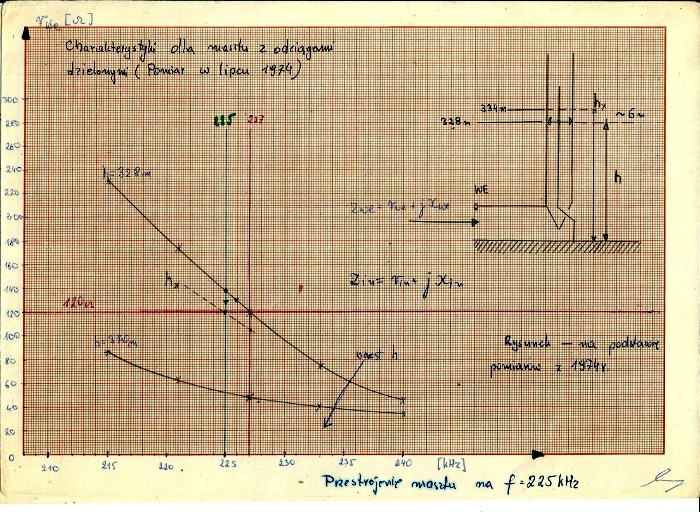 r we [Ω]
Charakterystyki dla masztu z odciągami
dzielonymi (Pomiar w lipcu 1974)
300
280
260
240
220
200
180
160
140
120
100
80
60
40
20
0
225 227
334m hx
328m ~6m
h
h=328m
WE
Zwe = rwe + j Xwe
hx
Zin = rin + j Xin
120Ω
h=330m
wzrost h
Rysunek — na podstawie
pomiarów z 1974r.
210 215 220 225 230 235 240 [kHz]
Przestrojenie masztu na f=225kHz